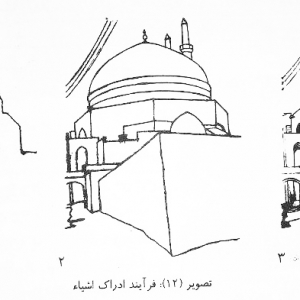 ۲
۳
تصویر (۱۲): فرآیند ادراک اشیاء